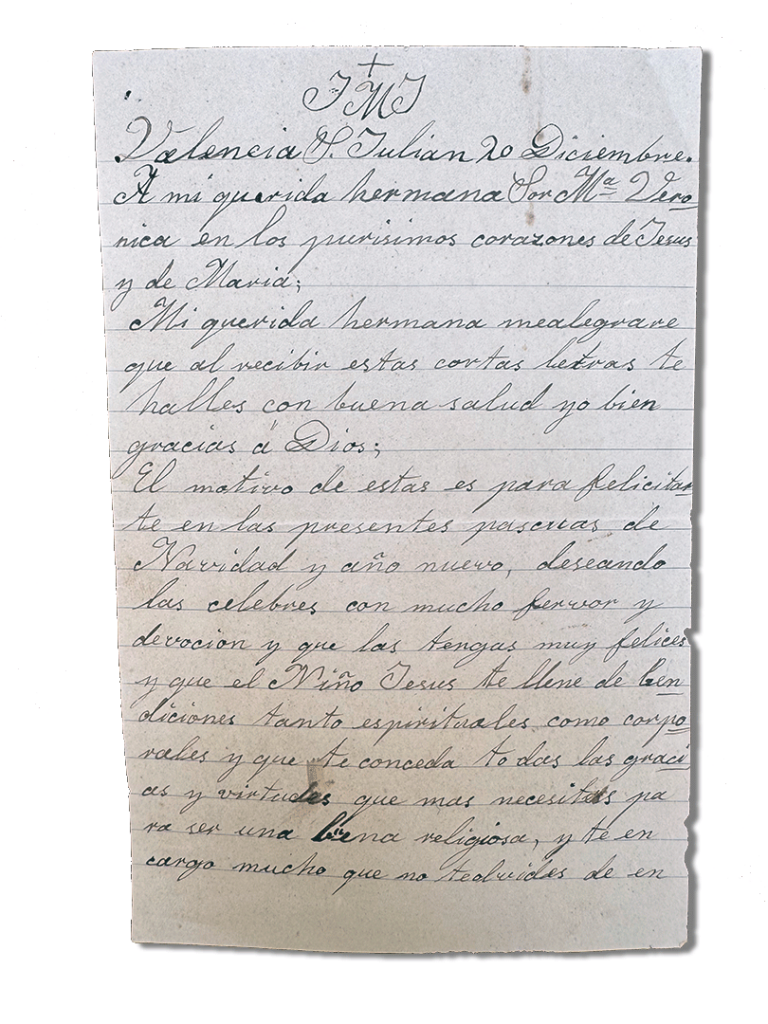 +
JMJ
Valencia S. Julian 20 Diciembre.
A mi querida hermana Sor Mª Vero
nica en los purisimos corazones de Jesus
y de Maria;
Mi querida hermana mealegrare
que al recibir estas cortas letras te
halles con buena salud yo bien
gracias á Dios;
El motivo de estas es para felicitar
te en las presentes pascuas de
Navidad y año nuevo, deseando
las celebres con mucho fervor y
devocion y que las tengas muy felices
y que el Niño Jesus te llene de ben
diciones tanto espirituales como corpo
rales y que te conceda todas las graci
as y virtudes que mas necesites pa
ra ser una buena religiosa, y te en
cargo mucho que no teolvides de en